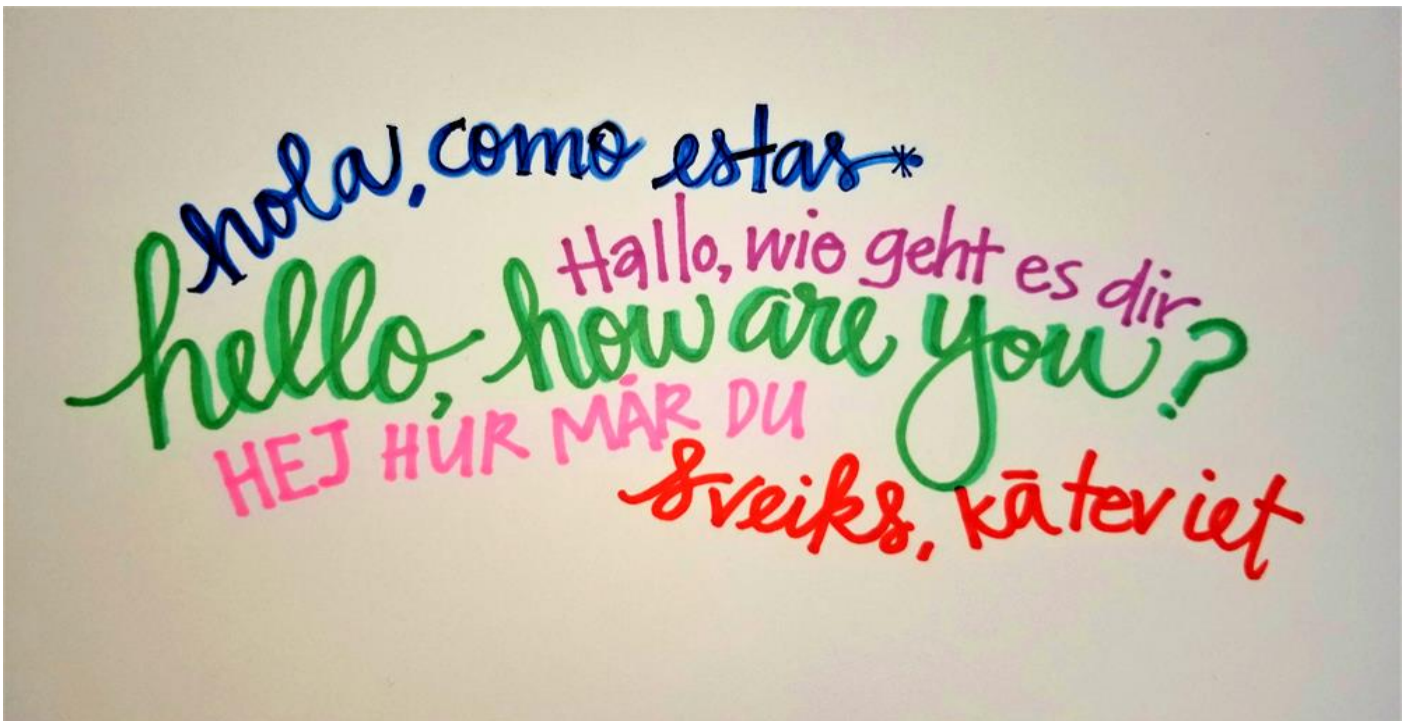 hola, como estas*
Hallo, wie geht es dir
hello, how are you?
HEJ HUR MÅR DU
sveiks, kā tev iet